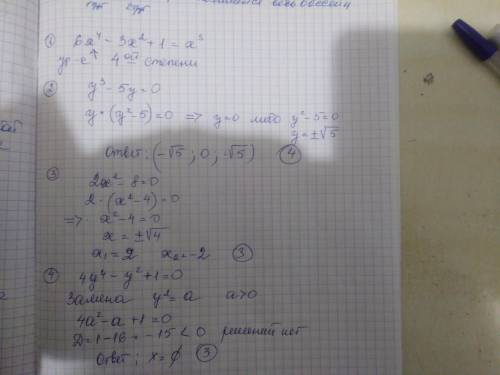 ① 6x⁴ - 3x² + 1 = x³
ур-е 4ой степени
② y³ - 5y = 0
y · (y² - 5) = 0 => y = 0 либо y² - 5 = 0
y = ±√5
Ответ: (-√5 ; 0 ; √5) ④
③ 2x² - 8 = 0
2 · (x² - 4) = 0
=> x² - 4 = 0
x = ±√4
x₁ = 2 x₂ = -2 ③
④ 4y⁴ - y² + 1 = 0
Замена y² = a a>0
4a² - a + 1 = 0
D = 1 - 16 = -15 < 0 решений нет
Ответ: x = ∅ ③